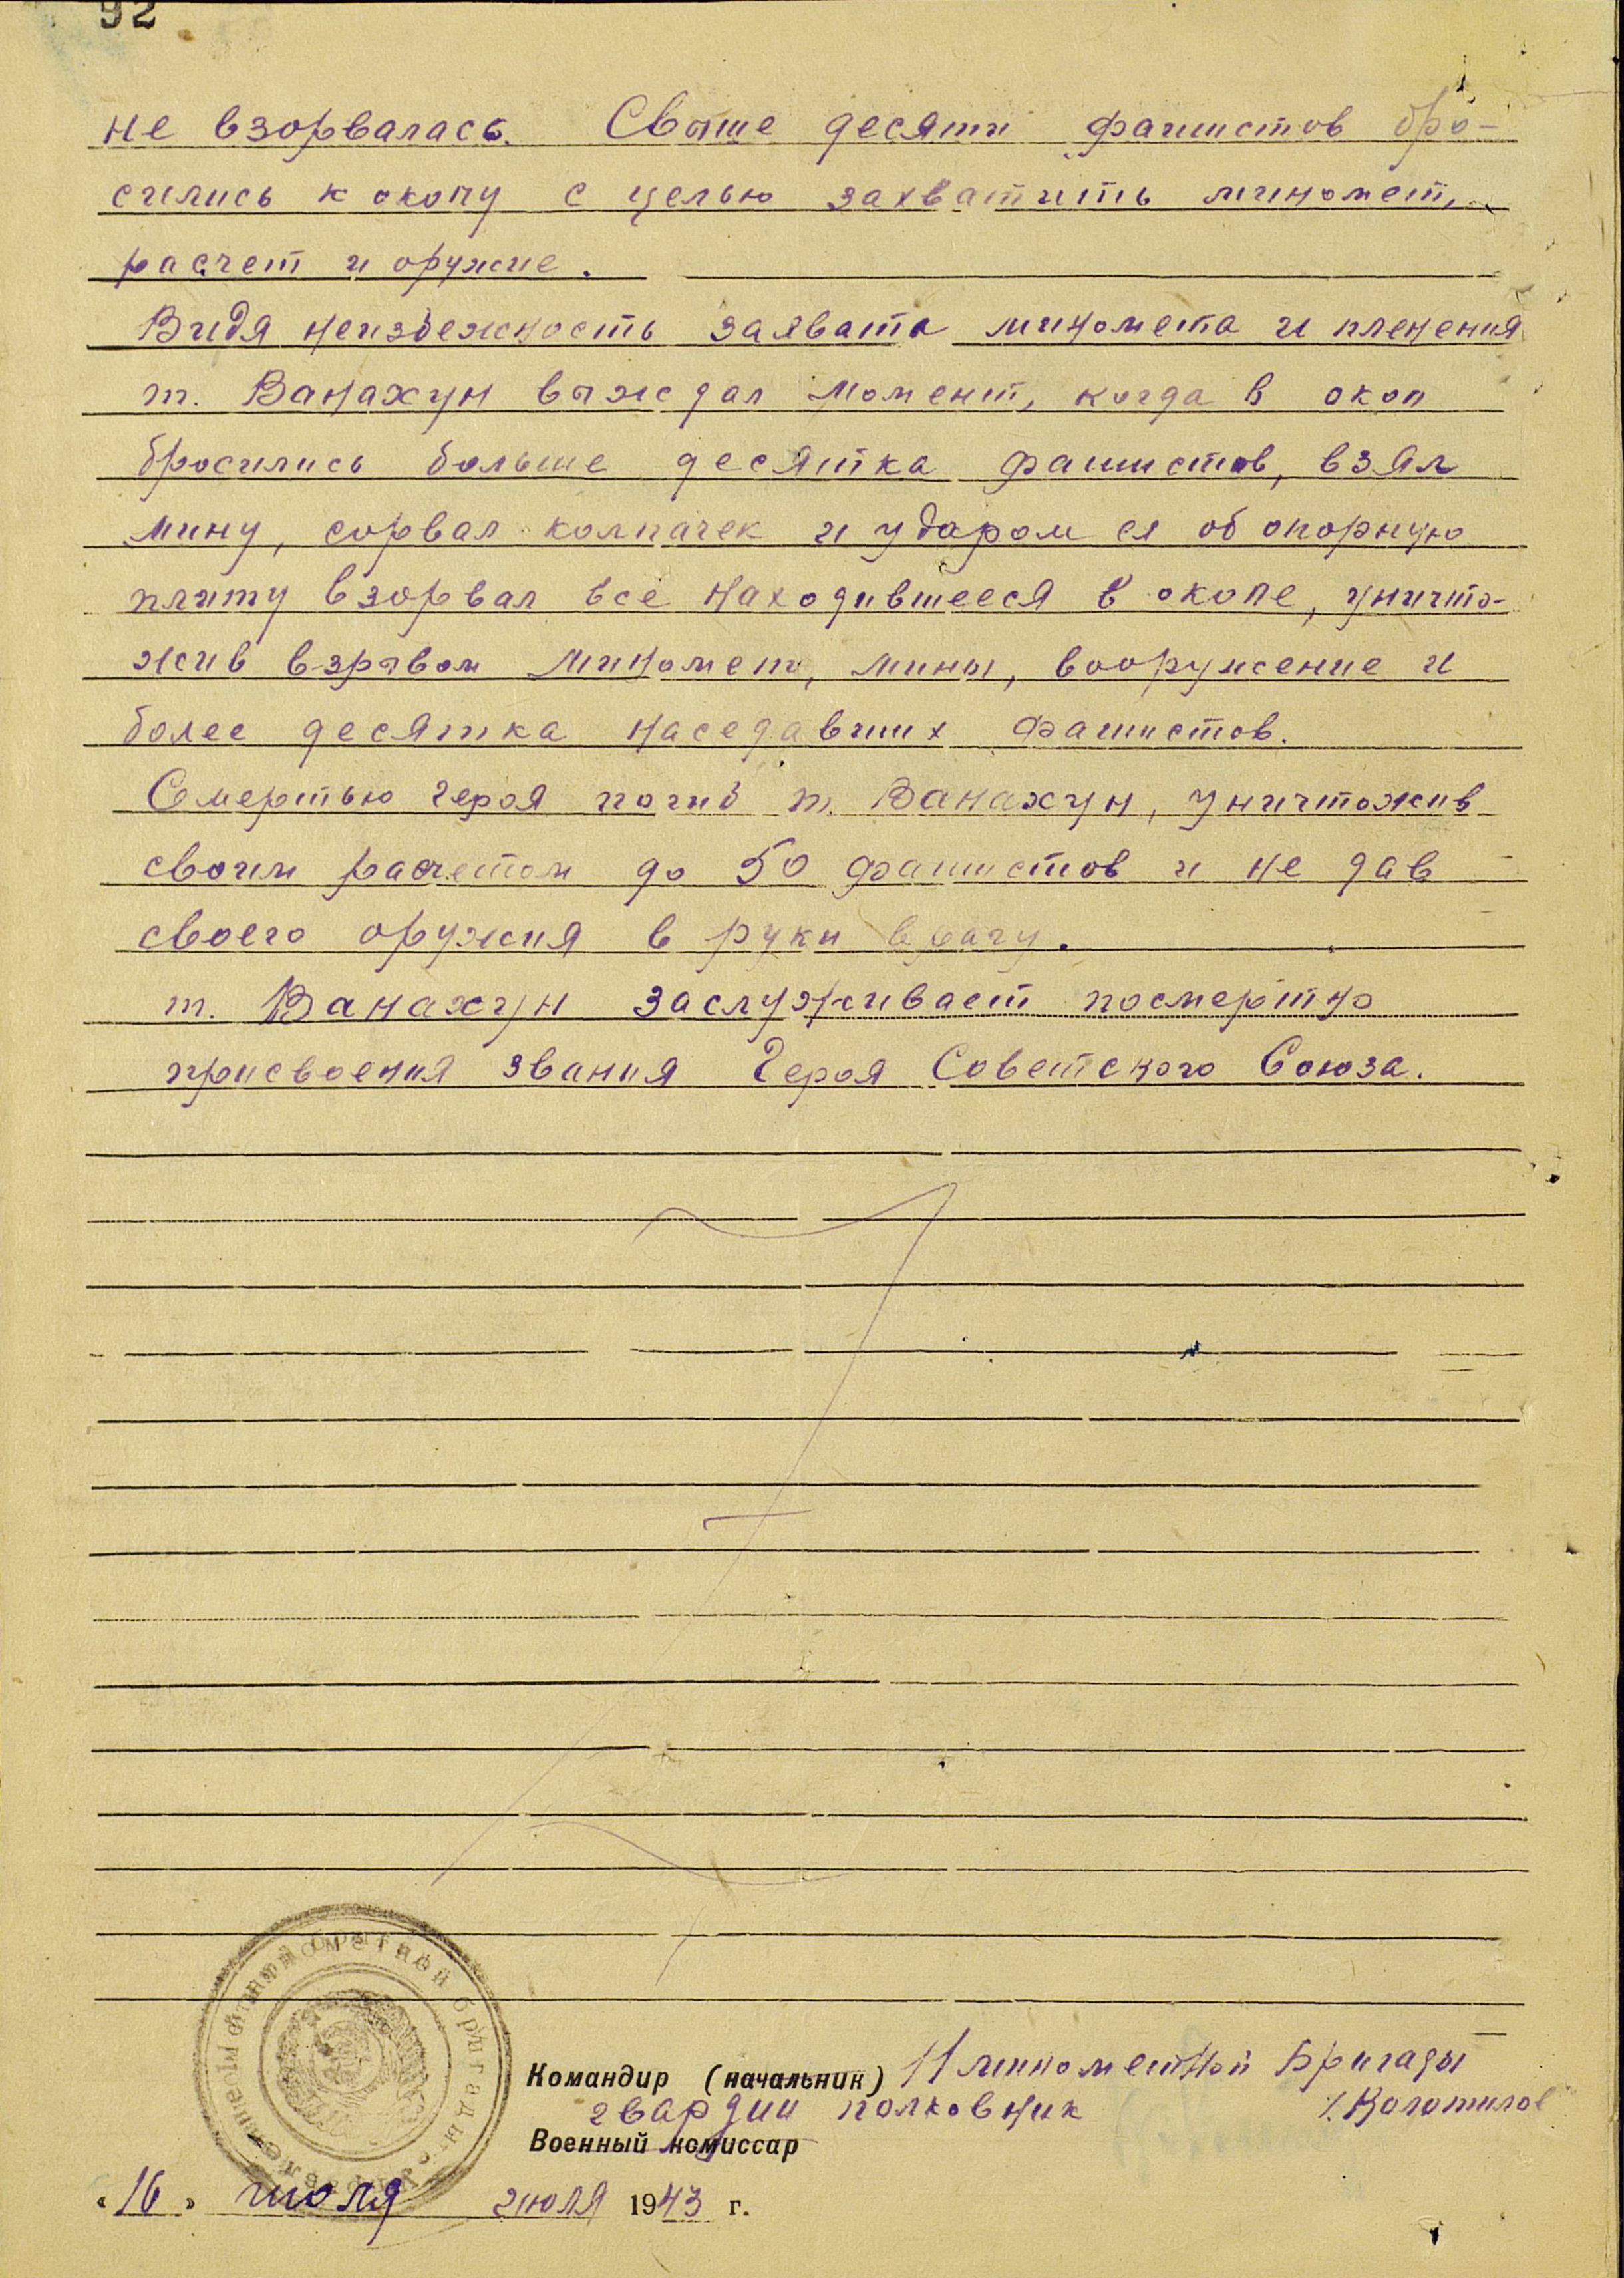 92
не взорвалась. Свыше десяти фашистов бро-
сились к окопу с целью захватить миномет,
расчет и оружие.
Видя неизбежность захвата миномета и пленения
т. Ванахун выждал момент, когда в окоп
бросились больше десятка фашистов, взял
мину, сорвал колпачек и ударом ея об опорную
плиту взорвал все находившееся в окопе, уничто-
жив взрывом миномет, мины, вооружение и
более десятка наседавших фашистов.
Смертью героя погиб т. Ванахун, уничтожив
своим расчетом до 50 фашистов и не дав
своего оружия в руки врагу.
т. Ванахун заслуживает посмертно
присвоения звания Героя Советского Союза.
Командир (начальник) 11 минометной Бригады
гвардии полковник
Военный комиссар
"16" июля июля 1943 г.